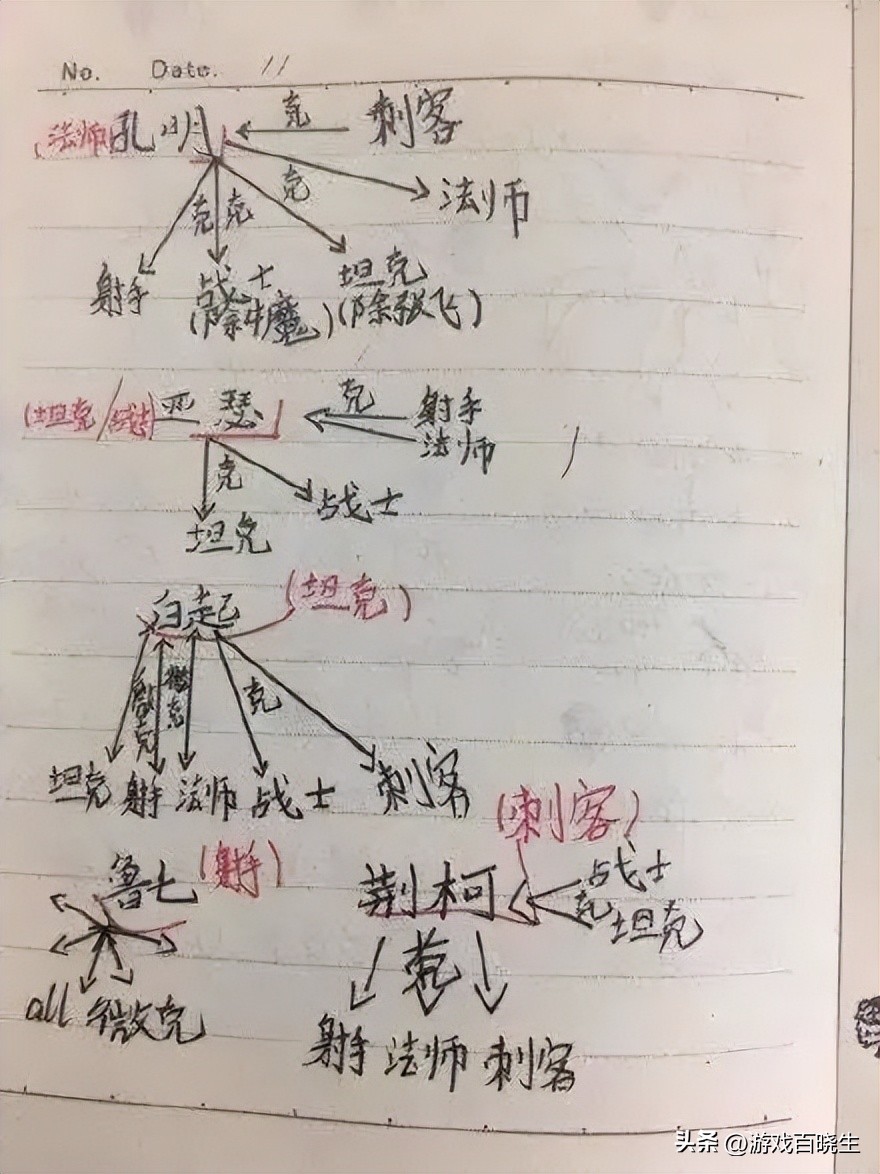 No. Date. 11
法师 孔明 克 刺客
克 克 克 法师
射手 战士 坦克
(除牛魔) (除张飞)
(坦克/战士) 亚瑟 克 射手
法师
克 战士
坦克
白起 (坦克)
微克 微克 克
坦克 射手 法师 战士 刺客
(刺客)
鲁七 (射手) 荆柯 克 战士
坦克
克
all 微克
射手 法师 刺客
头条 @游戏百晓生